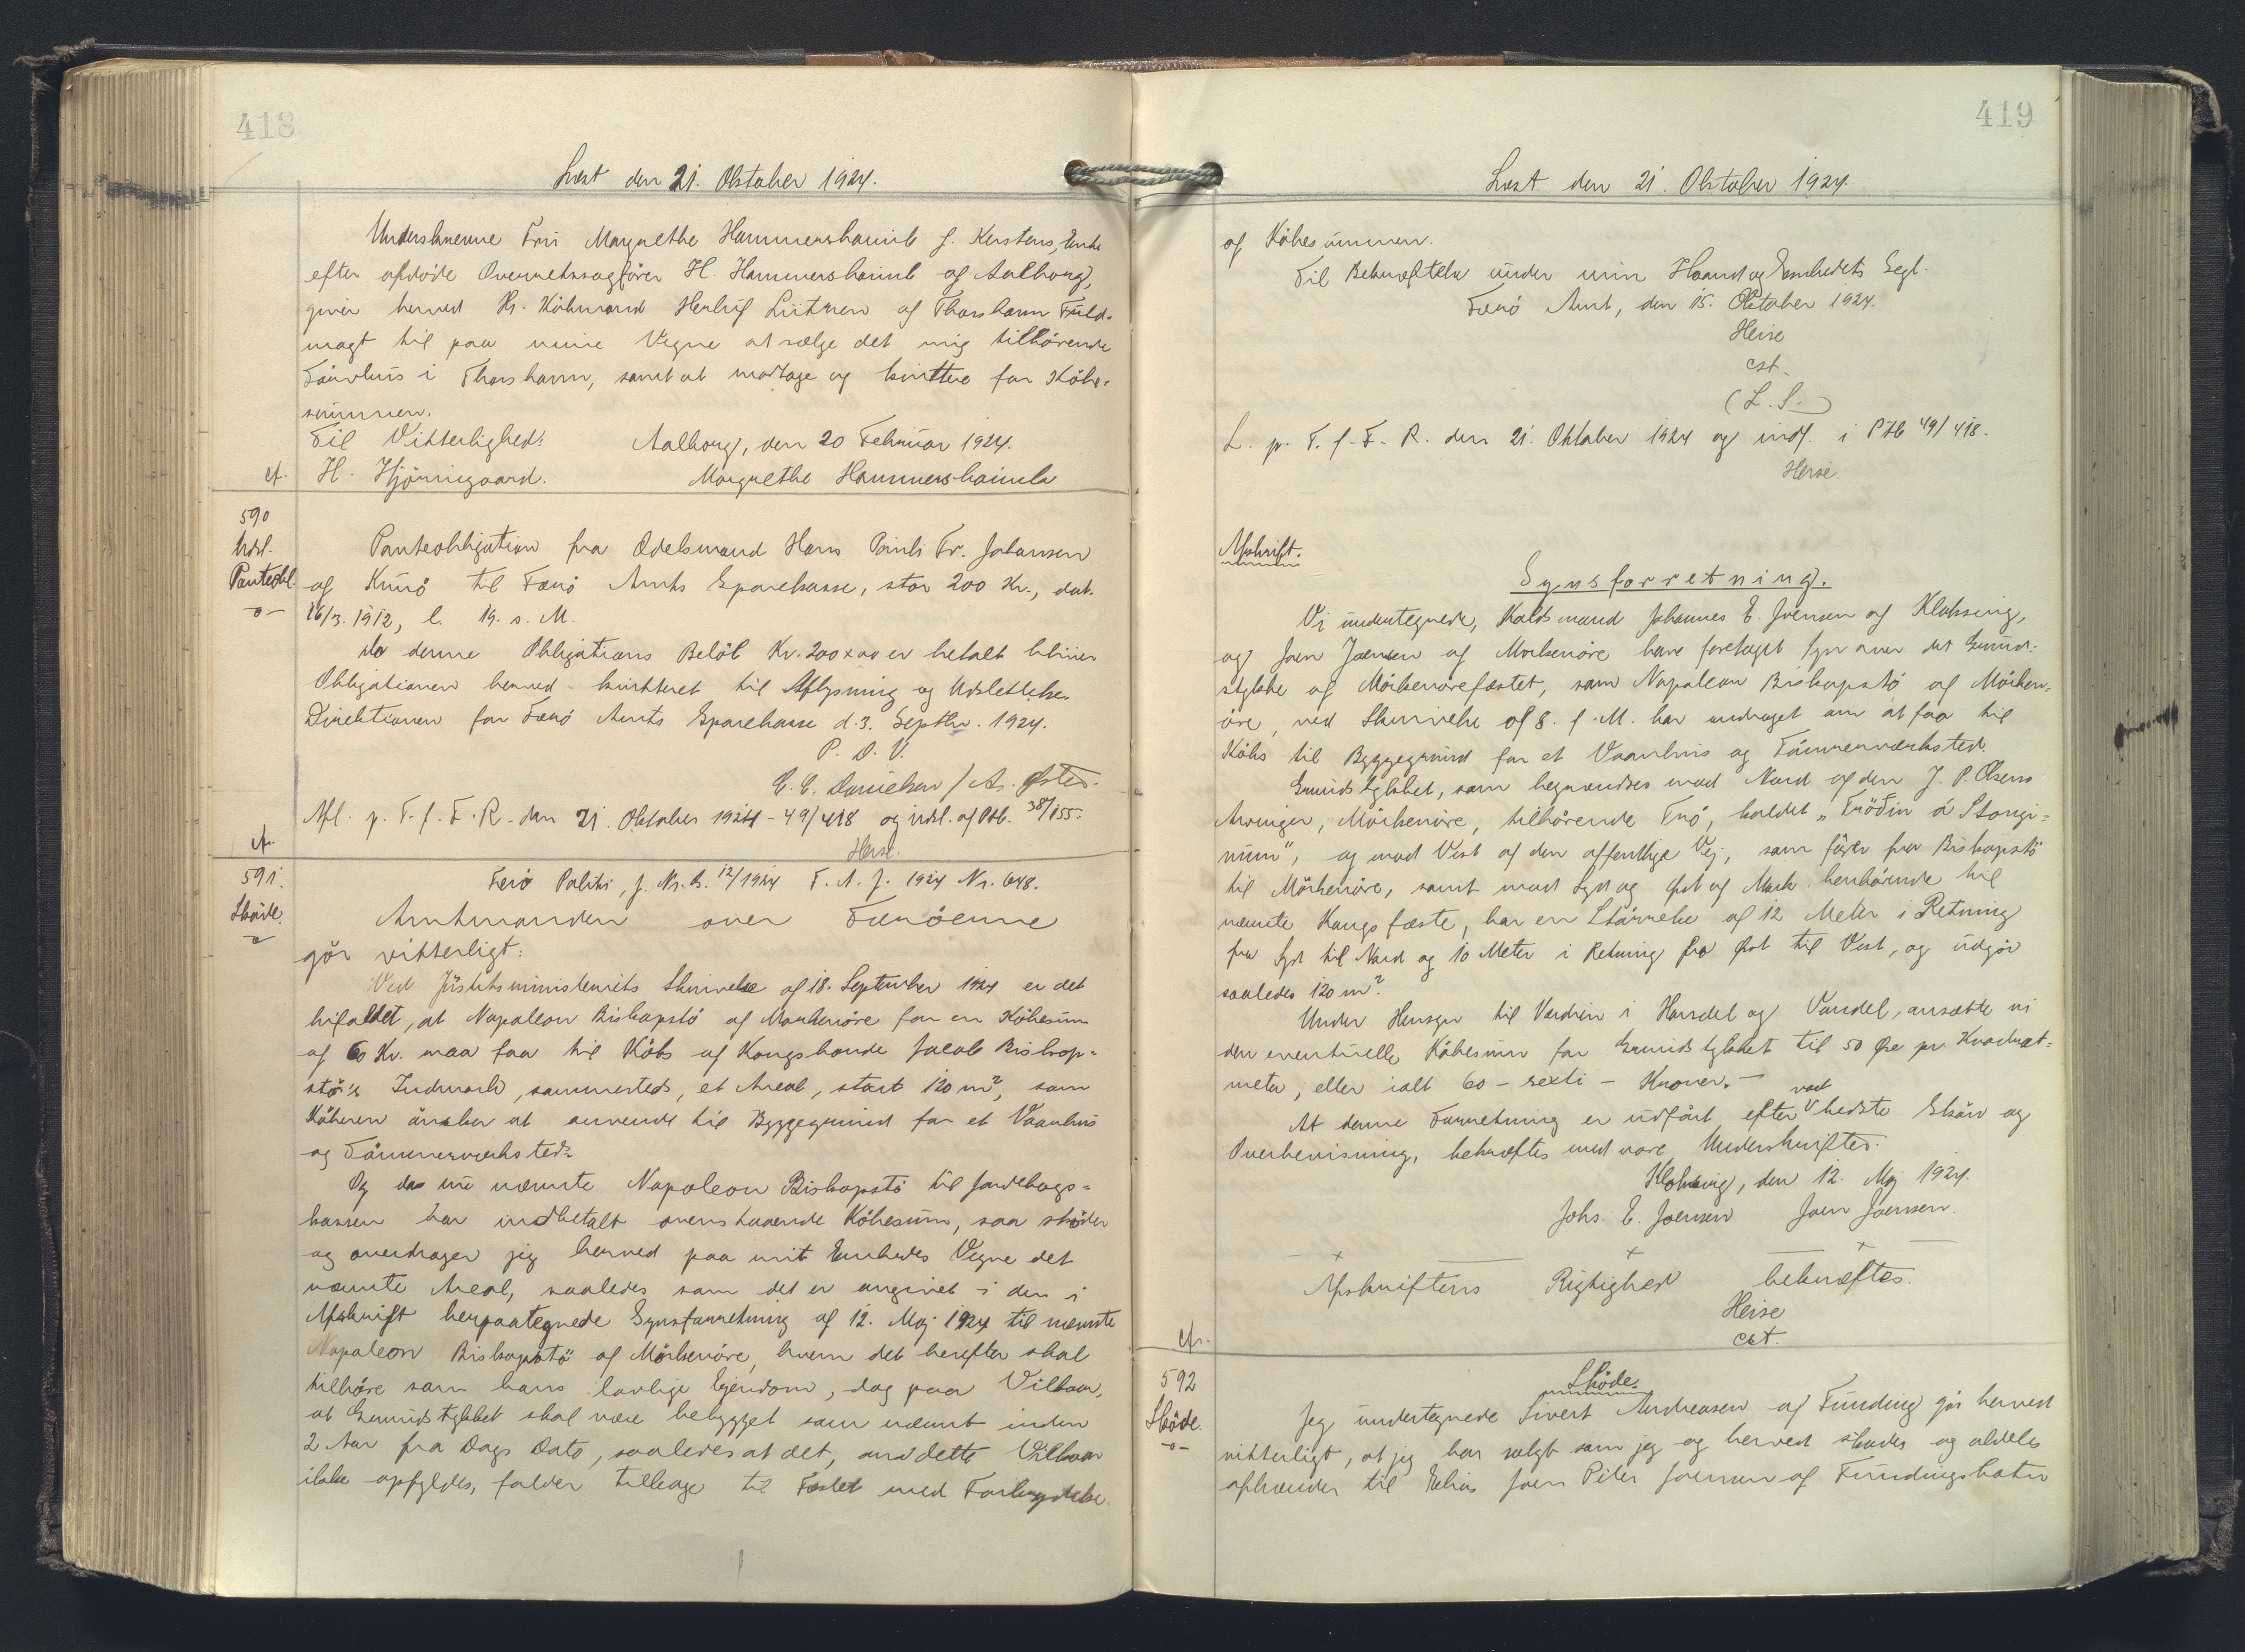 418
Læst den 21. Oktober 1924.
Underskrevne Fru Margrethe Hammershaimb f. Kerstens, Enke
efter afdøde Overretssagfører H. Hammershaimb af Aalborg,
giver herved Hr. Købmand Herluf Lützen af Thorshavn Fuld-
magt til paa mine Vegne at sælge det mig tilhørende
Taarnhus i Thorshavn, samt at modtage og kvittere for Købe-
summen.
Til Vitterlighed: Aalborg, den 20 Februar 1924.
cf. H. Hjørringaard. Margrethe Hammershaimb
590
Udsl.
Panteobl.
-o-
Panteobligation fra Odelsmand Hans Pauli Fr. Johansen
af Kunø til Færø Amts Sparekasse, stor 200 Kr., dat.
16/3. 1912, l. 19. s. M.
Da denne Obligations Beløb Kr. 200 x oo er betalt bliver
Obligationen herved kvitteret til Aflysning og Udslettelse.
Direktionen for Færø Amts Sparekasse d. 3. Septbr. 1924.
P. D. V.
E. E. Danielsen / A. Østed.
Afl. p. T. f. F. R. den 21. Oktober 1924 - 49/418 og udsl. af Ptb. 38/155.
cf. Heise.
591.
Skøde.
-o-
Færø Politi, J. Nr. B. 12/1924 F. A. J. 1924 Nr. 648.
Amtmanden over Færøerne
gør vitterligt:
Ved Justitsministeriets Skrivelse af 18. September 1924 er det
bifaldet, at Napoleon Biskopstø af Morkenøre for en Købesum
af 60 Kr. maa faa til Købs af Kongsbonde Jacob Biskop-
stø's Indmark, sammesteds, et Areal, stort 120 m², som
Køberen ønsker at anvende til Byggegrund for et Vaanhus
og Tømmerværksted.
Og da nu nævnte Napoleon Biskopstø til Jordebogs-
kassen har indbetalt ovenstaaende Købesum, saa skøder
og overdrager jeg herved paa mit Embedes Vegne det
nævnte Areal, saaledes som det er angivet i den i
Afskrift herpaategnede Synsforretning af 12. Maj 1924 til nævnte
Napoleon Biskopstø af Mörkenöre, hvem det herefter skal
tilhøre som hans lovlige Ejendom, dog paa Vilkaar,
at Grundstykket skal være bebygget som nævnt inden
2 Aar fra Dags Dato, saaledes at det, om dette Vilkaar
ikke opfyldes, falder tilbage til Fæstet med Fortabelse
419
Læst den 21. Oktober 1924.
af Købesummen.
Til Bekræftelse under min Haand og Embedets Segl.
Færø Amt, den 15. Oktober 1924.
Heise
cst.
(L. S.)
L. p. T. f. F. R. den 21. Oktober 1924 og indf. i Ptb 49/418.
Heise.
Afskrift.
Synsforretning.
Vi undertegnede, Valdsmand Johannes E. Joensen af Klaksvig,
og Joen Joensen af Morkenøre have foretaget Syn over det Grund-
stykke af Mörkenörefæstet, som Napoleon Biskopstö af Mörken-
öre, ved Skrivelse af 8. f. M. har andraget om at faa til
Købs til Byggegrund for et Vaanhus og Tømmerværksted.
Grundstykket, som begrændses mod Nord af den J. P. Olsens
Arvinger, Mörkenöre, tilhørende Trø, kaldet „Tröðin á Stongi-
num", og mod Vest af den offentlige Vej, som fører fra Biskopstö
til Mörkenöre, samt mod Syd og Øst af Mark henhørende til
nævnte Kongsfæste, har en Størrelse af 12 Meter i Retning
fra Syd til Nord og 10 Meter i Retning fra Øst til Vest, og udgør
saaledes 120 m².
Under Hensyn til Værdien i Handel og Vandel, ansætte vi
den eventuelle Købesum for Grundstykket til 50 Øre pr Kvadrat-
meter, eller ialt 60 - sexti - Kroner. -
At denne Forretning er udført efter vort bedste Skøn og
Overbevisning, bekræftes med vore Underskrifter.
Klaksvig, den 12. Maj 1924.
Johs. E. Joensen Joen Joensen.
Afskriftens Rigtighed bekræftes.
Heise
cst.
cf.
592
Skøde.
-o-
Skøde.
Jeg undertegnede Sivert Andreasen af Funding gør herved
vitterligt, at jeg har solgt som jeg og herved skøder og aldeles
afhænder til Elias Joen Peter Joensen af Fundingsbotn